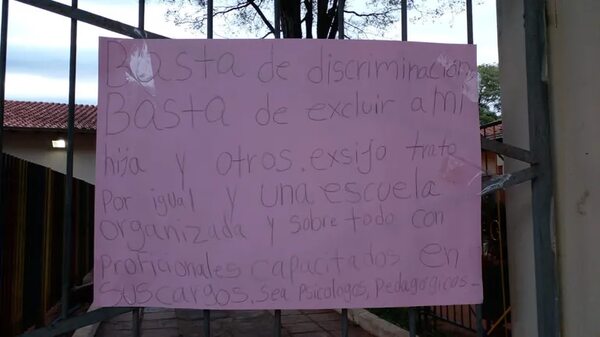 Basta de discriminación
Basta de excluir a mi
hija y otros. exsijo trato
Por igual y una escuela
organizada y sobre todo con
Proficionales capacitados en
sus cargos, sea Psicologos, Pedagogicos-